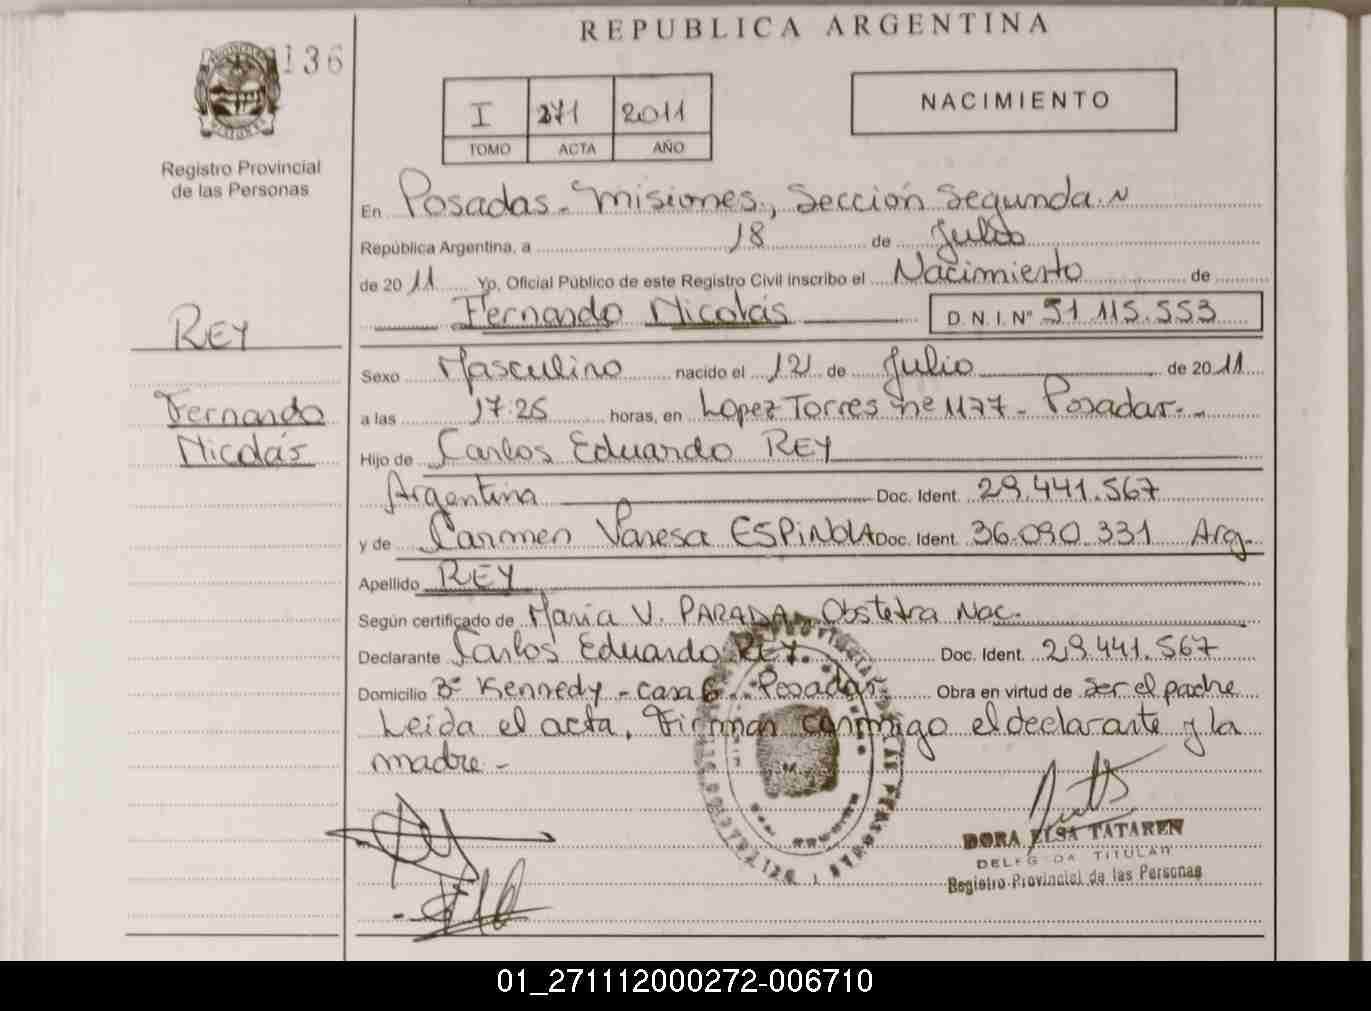 REPUBLICA ARGENTINA
136
I 271 2011
TOMO ACTA AÑO
NACIMIENTO
Registro Provincial
de las Personas
En Posadas - Misiones, Sección Segunda
República Argentina, a 18 de Julio
de 2011 Yo, Oficial Público de este Registro Civil inscribo el Nacimiento de
Fernando Nicolás D. N. I. Nº 51 115.553
REY
Fernando
Nicolás
Sexo Masculino nacido el 12 de Julio de 2011
a las 17:25 horas, en Lopez Torres nº 1177 - Posadas -
Hijo de Carlos Eduardo REY
Argentina Doc. Ident. 29.441.567
y de Carmen Vanesa ESPiNOLA Doc. Ident. 36.090.331 Arg.
Apellido REY
Según certificado de Maria V. PARADA Obstetra Nac.
Declarante Carlos Eduardo REY. Doc. Ident. 29.441.567
Domicilio Bº Kennedy - casa 6 Posadas Obra en virtud de ser el padre
Leida el acta, Firman conmigo el declarante y la
madre -
DORA ELSA TATAREN
DELEGADA TITULAR
Registro Provincial de las Personas
01_271112000272-006710